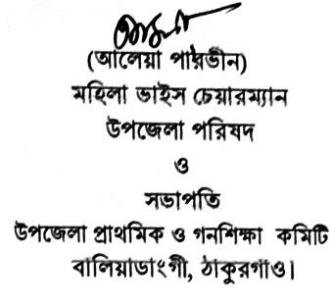 (আলেয়া পারভীন)
মহিলা ভাইস চেয়ারম্যান
উপজেলা পরিষদ
ও
সভাপতি
উপজেলা প্রাথমিক ও গনশিক্ষা কমিটি
বালিয়াডাংগী, ঠাকুরগাঁও।